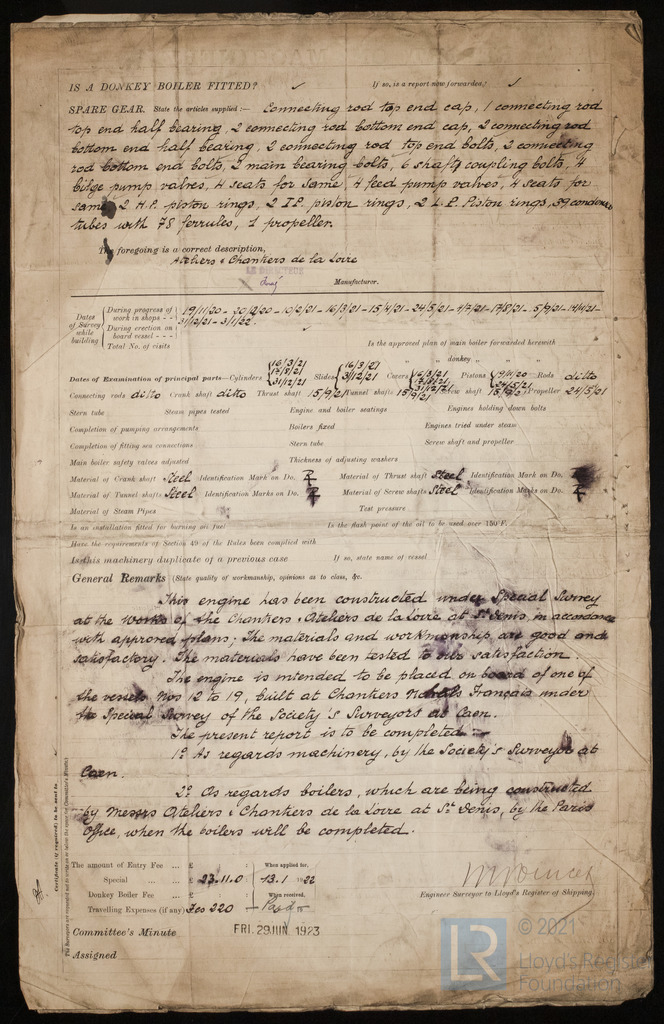 IS A DONKEY BOILER FITTED? ✓ If so, is a report now forwarded? ✓
SPARE GEAR. State the articles supplied:— Connecting rod top end cap, 1 connecting rod
top end half bearing, 2 connecting rod bottom end cap, 2 connecting rod
bottom end half bearing, 2 connecting rod top end bolts, 2 connecting
rod bottom end bolts, 2 main bearing bolts, 6 shaft coupling bolts, 4
bilge pump valves, 4 seats for same, 4 feed pump valves, 4 seats for
same, 2 H.P. piston rings, 2 I.P. piston rings, 2 L.P. Piston rings, 39 condenser
tubes with 78 ferrules, 1 propeller.
The foregoing is a correct description,
Ateliers & Chantiers de la Loire
LE DIRECTEUR
Manufacturer.
Dates of Survey while building
During progress of work in shops - - 19/11/20 - 20/12/20 - 10/2/21 - 16/3/21 - 15/4/21 - 24/5/21 - 4/7/21 - 17/8/21 - 5/9/21 -
31/12/21 - 3/1/22.
During erection on board vessel - - -
Total No. of visits
Is the approved plan of main boiler forwarded herewith
" " donkey " "
Dates of Examination of principal parts—Cylinders 16/3/21 17/8/21 31/12/21 Slides 16/3/21 31/12/21 Covers 16/3/21 17/8/21 31/12/21 Pistons 24/5/21 Rods ditto
Connecting rods ditto Crank shaft ditto Thrust shaft 15/9/21 Tunnel shafts 15/9/21 Screw shaft 15/9/21 Propeller 24/5/21
Stern tube Steam pipes tested Engine and boiler seatings Engines holding down bolts
Completion of pumping arrangements Boilers fixed Engines tried under steam
Completion of fitting sea connections Stern tube Screw shaft and propeller
Main boiler safety valves adjusted Thickness of adjusting washers
Material of Crank shaft Steel Identification Mark on Do. Material of Thrust shaft Steel Identification Mark on Do.
Material of Tunnel shafts Steel Identification Marks on Do. Material of Screw shafts Steel Identification Marks on Do.
Material of Steam Pipes Test pressure
Is an installation fitted for burning oil fuel Is the flash point of the oil to be used over 150°F.
Have the requirements of Section 49 of the Rules been complied with
Is this machinery duplicate of a previous case If so, state name of vessel
General Remarks (State quality of workmanship, opinions as to class, &c.
This engine has been constructed under Special Survey
at the works of the Chantiers & Ateliers de la Loire at St Denis, in accordance
with approved plans; The materials and workmanship are good and
satisfactory. The materials have been tested to our satisfaction.
The engine is intended to be placed on board of one of
the vessels Nos 12 to 19, built at Chantiers Navals Français under
the Special Survey of the Society's Surveyors at Caen.
The present report is to be completed:—
1º. As regards machinery, by the Society's Surveyor at
Caen.
2º. As regards boilers, which are being constructed
by Messrs Ateliers & Chantiers de la Loire at St Denis, by the Paris
Office, when the boilers will be completed.
Certificate (if required) to be sent to
The amount of Entry Fee ... £ : : When applied for,
Special ... ... £ 23.11.0 13.1.1922
Donkey Boiler Fee ... £ : : When received,
Travelling Expenses (if any) Fcs 220
Engineer Surveyor to Lloyd's Register of Shipping.
Committee's Minute FRI. 29 JUN 1923
Assigned
LR
© 2021
Lloyd's Register
Foundation